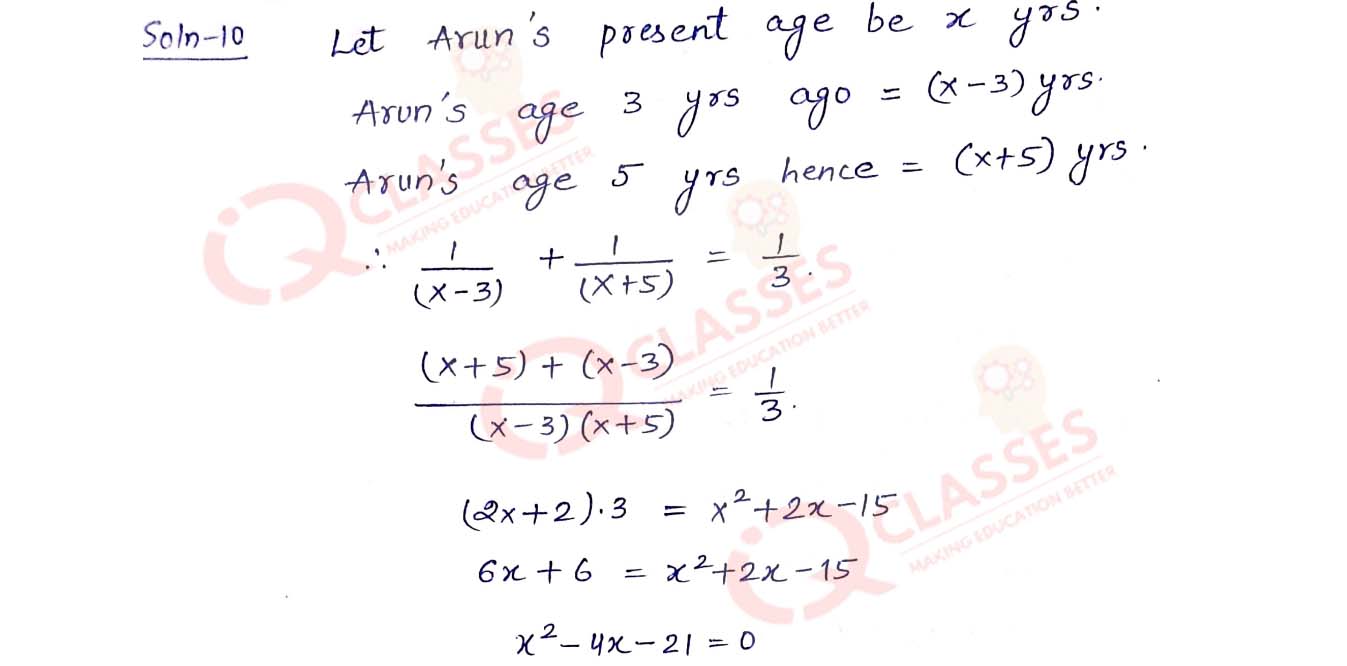 Soln-10 Let Arun's present age be x yrs.
Arun's age 3 yrs ago = (x-3) yrs.
Arun's age 5 yrs hence = (x+5) yrs.
∴ 1/(x-3) + 1/(x+5) = 1/3.
(x+5) + (x-3) / (x-3)(x+5) = 1/3.
(2x+2).3 = x²+2x-15
6x+6 = x²+2x-15
x²-4x-21=0
QCLASSES
MAKING EDUCATION BETTER
QCLASSES
MAKING EDUCATION BETTER
QCLASSES
MAKING EDUCATION BETTER